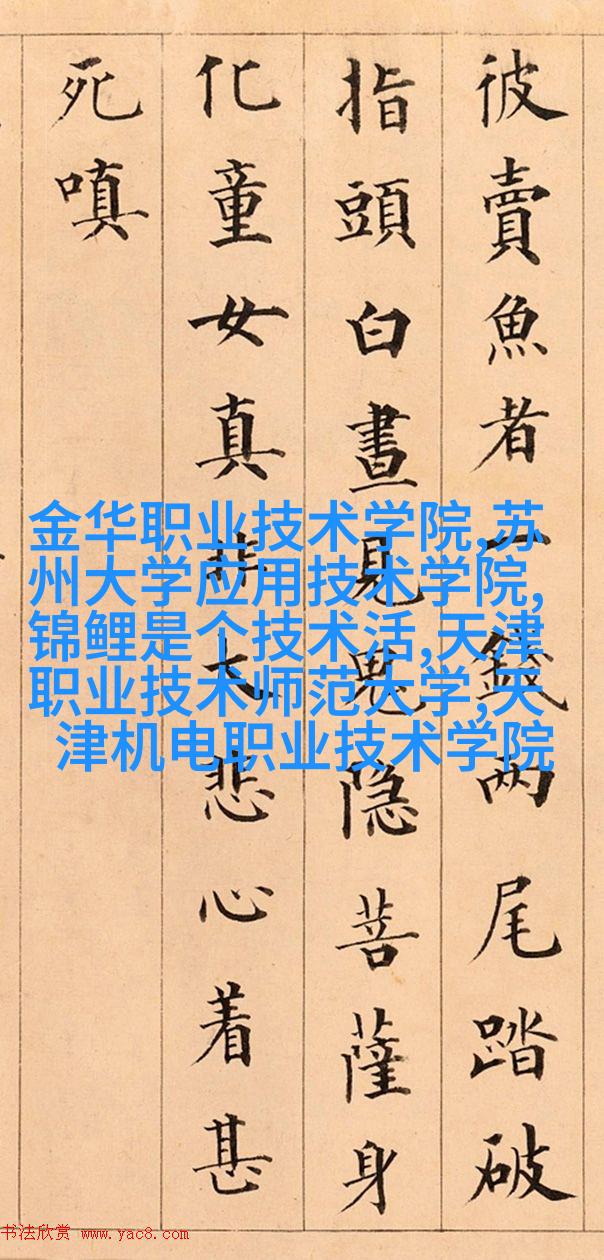 彼賣魚者一錢两尾踏破
指頭白晝見鬼隐菩薩身
化童女真大悲心着甚
死嗔
金华职业技术学院,苏
州大学应用技术学院,
锦鲤是个技术活,天津
职业技术师范大学,天
津机电职业技术学院
书法欣赏 www.yac8.com